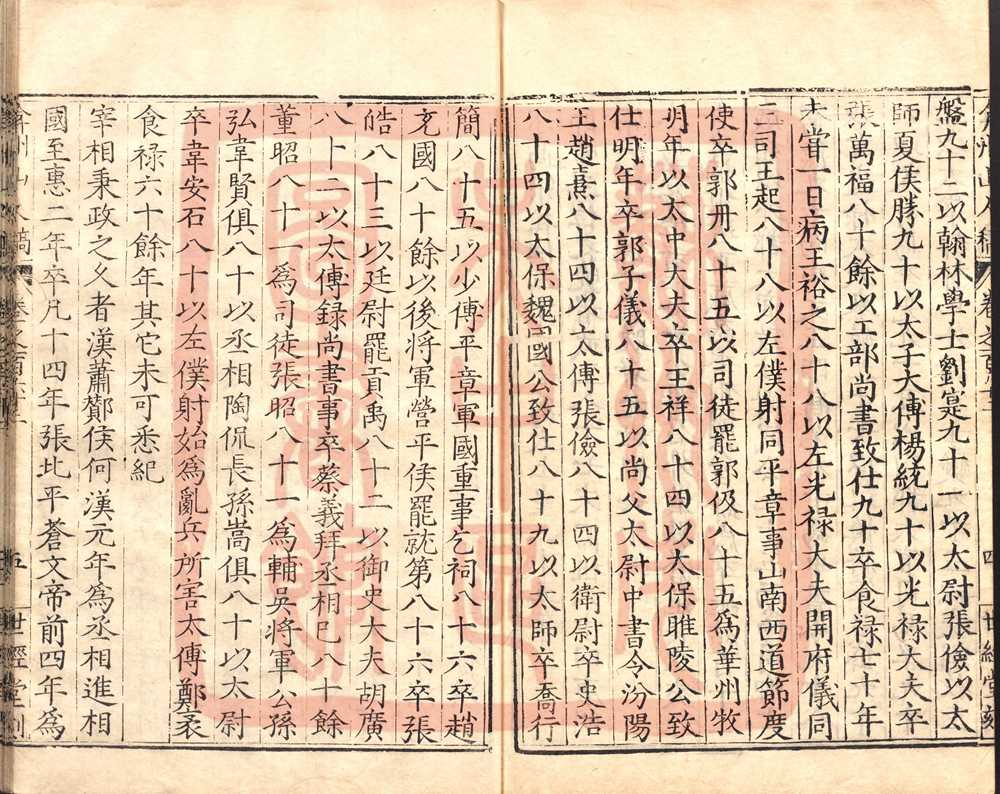 弇州山人稿 卷之百六十 四 世經堂刻
盤九十二以翰林學士劉寔九十一以太尉張儉以太
師夏侯勝九十以太子太傅楊統九十以光祿大夫卒
張萬福八十餘以工部尚書致仕九十卒食祿七十年
未嘗一日病王裕之八十八以左光祿大夫開府儀同
三司王起八十八以左僕射同平章事山南西道節度
使卒郭丹八十五以司徒罷郭伋八十五為華州牧
明年以太中大夫卒王祥八十四以太保睢陵公致
仕明年卒郭子儀八十五以尚父太尉中書令汾陽
王趙熹八十四以太傅張儉八十四以衛尉卒史浩
八十四以太保魏國公致仕八十九以太師卒喬行
簡八十五以少傅平章軍國重事乞祠八十六卒趙
充國八十餘以後將軍營平侯罷就第八十六卒張
皓八十三以廷尉罷貢禹八十二以御史大夫胡廣
八十二以太傅録尚書事卒蔡義拜丞相巳八十餘
董昭八十一為司徒張昭八十一為輔吳將軍公孫
弘韋賢俱八十以丞相陶侃長孫嵩俱八十以太尉
卒韋安石八十以左僕射始為亂兵所害太傅鄭袤
食祿六十餘年其它未可悉紀
宰相秉政之久者漢蕭酇侯何漢元年為丞相進相
國至惠二年卒凡十四年張北平蒼文帝前四年為
弇州山人稿 卷之百六十 五 世經堂刻